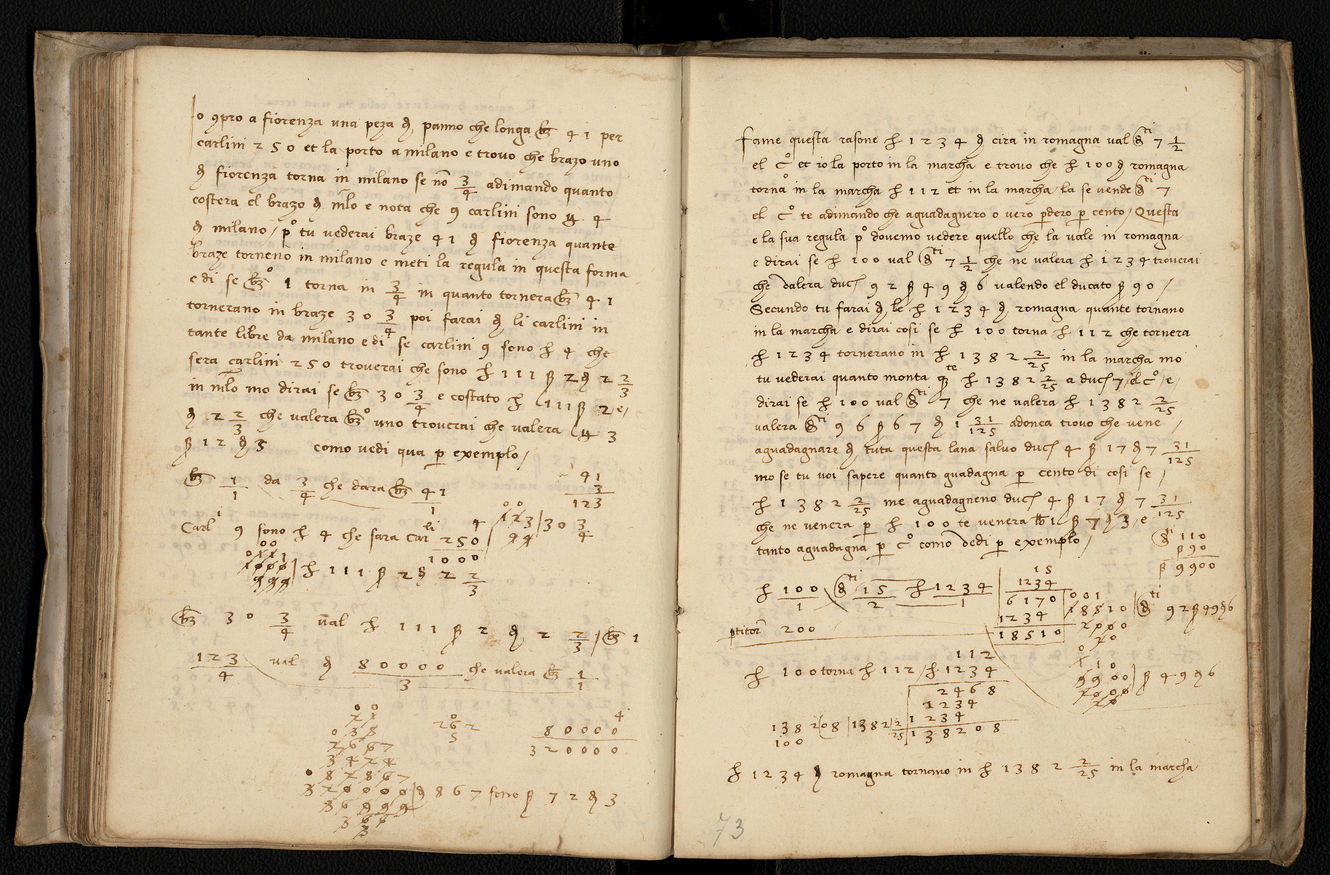 Io 9pro a fiorenza una peza đ panno che longa bz 41 per
carlini 250 et la porto a milano e trovo che brazo uno
đ fiorenza torna in milano se nō 3/4 adimando quanto
costera el brazo đ mlo e nota che 9 carlini sono 4
đ milano / po tu vederai braze 41 đ fiorenza quante
braze torneno in milano e meti la regula in questa forma
e di se bzo 1 torna in 3/4 in quanto tornera bz 41
tornerano in braze 30 3/4 poi farai đ li carlini in
tante libre da milano e di se carlini 9 sono ł 4 che
sera carlini 250 troverai che sono ł 111 ß 2 đ 2 2/3
in mlo mo dirai se bz 30 3/4 e costato ł 111 ß 2 e
đ 2 2/3 che valera bzo uno troverai che valera 3
ß 12 đ 3 como vedi qua p exemplo /
bz 1/1 da 3/4 che dara bz 41/1
41
3
123
Carl 9 sono ł 4 che sara Car li 250
4
1000
123 | 30 3/4
1000
999 | ł 111 ß 2 đ 2 2/3
bz 30 3/4 val ł 111 ß 2 đ 2 2/3 / bz 1
123/4 val đ 80000/3 che valera bz 1/1
80000
4
320000
đ 867 sono ß 72 đ 3
Fame questa rasone ł 1234 đ cira in romagna val ti 7 1/2
el co et io la porto in la marcha e trovo che ł 100 đ romagna
torna in la marcha ł 112 et in la marcha la se vende ti 7
el co te adimando che aguadagnero o vero pdero p cento / Questa
e la sua regula po dovemo vedere quello che la vale in romagna
e dirai se ł 100 val ti 7 1/2 che ne valera ł 1234 troverai
che valera duc 92 ß 49 đ 6 valendo el ducato ß 90 /
Secundo tu farai đ le ł 1234 đ romagna quante tornano
in la marcha e dirai cosi se ł 100 torna ł 112 che tornera
ł 1234 tornerano in ł 1382 2/25 in la marcha mo
tu vederai quanto monta qste ł 1382 2/25 a duc 7 el co e
dirai se ł 100 val ti 7 che ne valera ł 1382 2/25
valera ti 96 ß 67 đ 1 31/125 adonca trovo che vene
aguadagnare đ tuta questa lana salvo duc 4 ß 17 đ 7 31/125
mo se tu voi sapere quanto guadagna p cento di cosi se /
ł 1382 2/25 me aguadagneno duc 4 ß 17 đ 7 31/125
che ne venera p ł 100 te venera 1 ß 7 đ 3 e
tanto aguadagna p co como vedi p exemplo /
110
ß 90
ß 9900
ł 100/1 ti 15/2 ł 1234/1
15
1234
6170
1234
18510
ptitor 200
001
18510
2000
20
ti 92 ß 49 đ 6
ł 100 torna ł 112 / ł 1234
112
2468
1234
1234
138208
138208 | 1382 2/25
100
9900
2000
20
ß 49 đ 6
ł 1234 đ romagna tornano in ł 1382 2/25 in la marcha
73